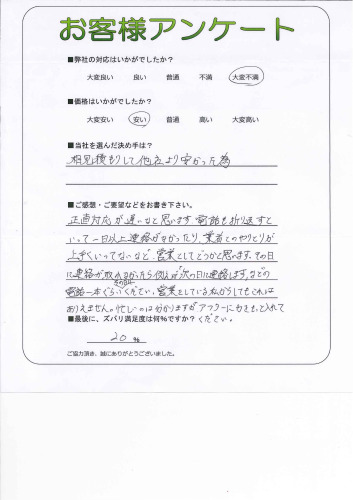 お客様アンケート
■弊社の対応はいかがでしたか？
大変良い 良い 普通 不満 大変不満
■価格はいかがでしたか？
大変安い 安い 普通 高い 大変高い
■当社を選んだ決め手は？
相見積もりして他社より安かった為
■ご感想・ご要望などをお書き下さい。
正直対応が遅いなと思います。電話も折り返すと
いって一日以上連絡がなかったり、業者とのやりとりが
上手くいってないなど、営業としてどうかと思います。その日
に連絡が取れなかったら例えば「次の日に連絡します。」などの
その日に
電話一本ぐらいください。営業をしている私からしてもこれは
ありえません。忙しいのは分かりますがアフターにも力を入れて
■最後に、ズバリ満足度は何％ですか？ ください。
20 %
ご協力頂き、誠にありがとうございました。